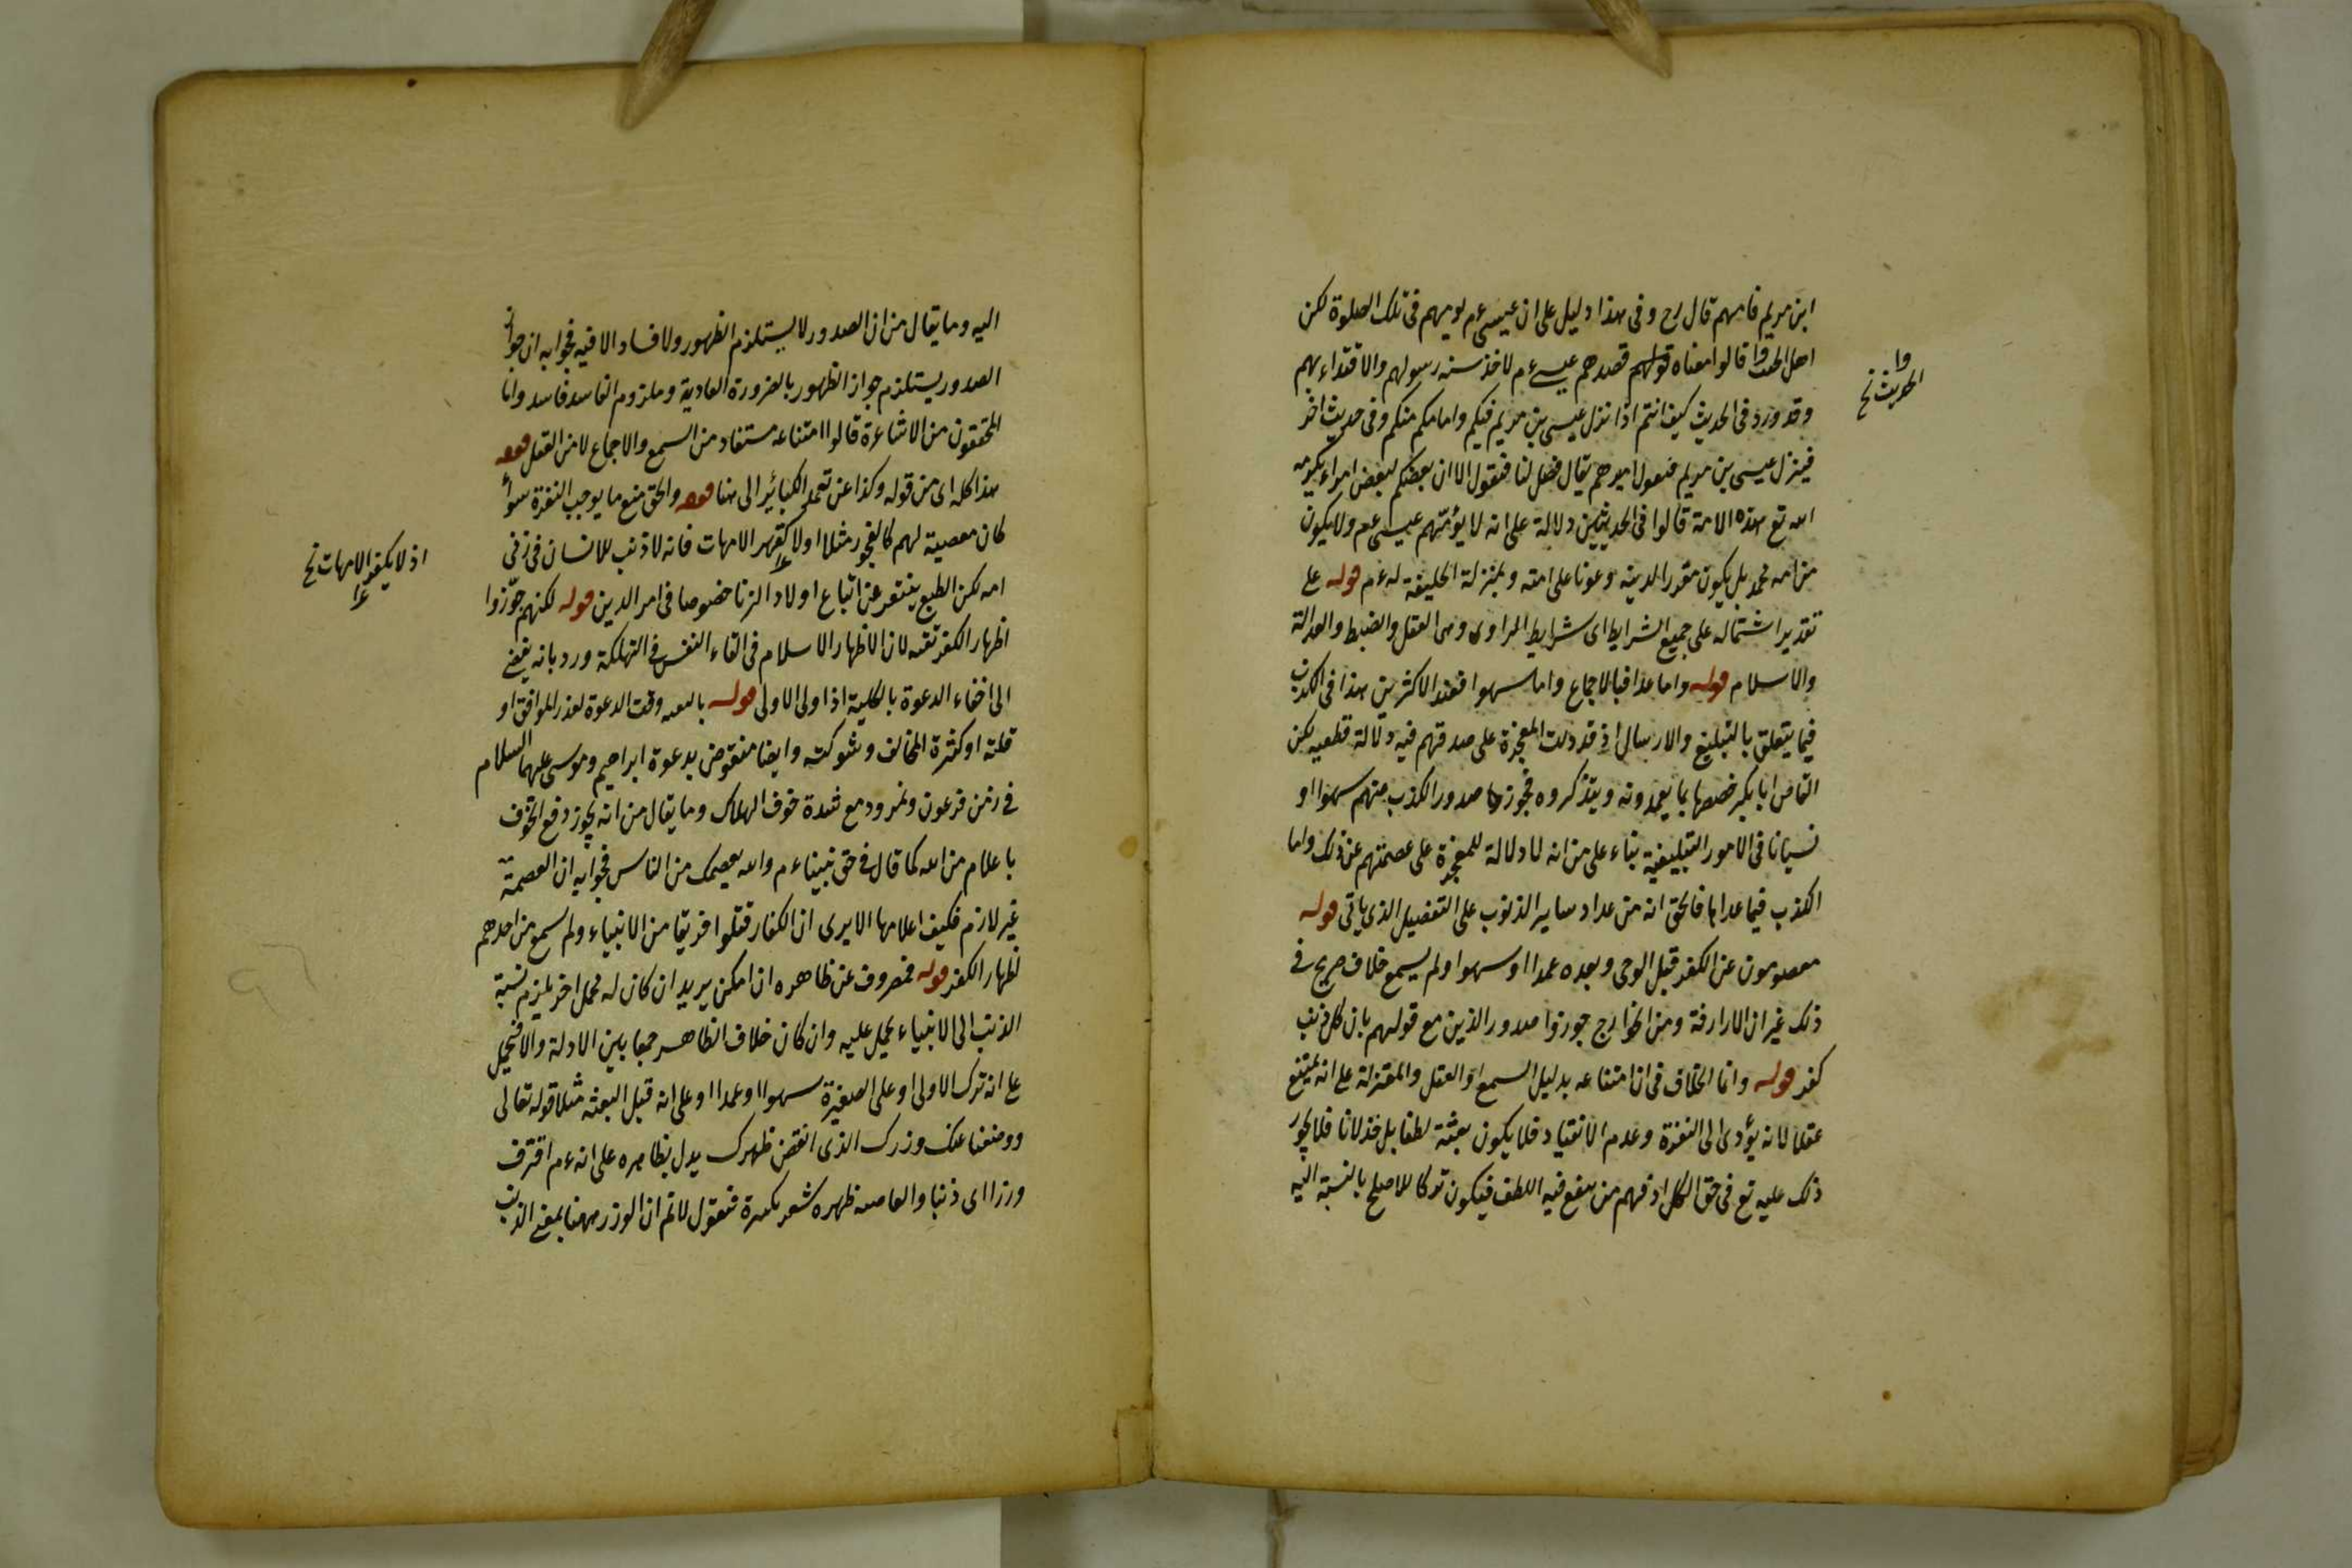 ابن مريم فامهم قال رح وفى هذا دليل على ان عيسى عم يومهم فى تلك الصلوة لكن
اهل الحق قالوا معناه قولهم قصدهم عيسى عم لاخذ سنه رسولهم والاقتداء بهم
وقد ورد فى الحديث كيف انتم اذا نزل عيسى بن مريم فيكم وامامكم منكم وفى حديث اخر
فينزل عيسى بن مريم فيقول اميرهم تعال فصل لنا فيقول الا ان بعضكم لبعض امراء تكرمه
الله تع هذه الامة قالوا فى الحديثين دلالة على انه لا يؤمهم عيسى عم ولا يكون
من امه محمد بل يكون مقررا لدينه وعونا على امته وبمنزلة الخليفة له عم قوله على
تقدير اشتماله على جميع الشرايط اى شرايط الراوى وهى العقل والضبط والعدالة
والاسلام قوله واما عمدا فبالاجماع واما سهوا فعند الاكثرين هذا فى الكذب
فيما يتعلق بالتبليغ والارسال اذ قد دلت المعجزة على صدقهم فيه دلالة قطعيه لكن
القاضى ابا بكر خصصها بما يعمدونه ويتذكروه فجوز صدور الكذب منهم سهوا او
نسيانا فى الامور التبليغية بناء على من انه لا دلالة للمعجزة على عصمتهم عن ذلك واما
الكذب فيما عداها فالحق انه من عداد ساير الذنوب على التفصيل الذى ياتى قوله
معصومون عن الكفر قبل الوحى وبعده عمدا او سهوا ولم يسمع خلاف صريح فى
ذلك غير ان الازارقة ومن الخوارج جوزوا صدور الذنب مع قولهم بان كل ذنب
كفر قوله وانما الخلاف فى ان امتناعه بدليل السمع او العقل والمعتزلة على انه يمتنع
عقلا لانه يؤدى الى النفرة وعدم الانقياد فلا يكون بعثة لطفا بل خذلانا فلا يجوز
ذلك عليه تع فى حق الكل او فيهم من ينفع فيه اللطف فيكون تركا للاصلح بالنسبة اليه
الحديث نخ
اليه وما يقال من ان الصدور لا يستلزم الظهور ولا فساد الا فيه فجوابه ان جواز
الصدور يستلزم جواز الظهور بالضرورة العادية وملزوم الفاسد فاسد واما
المحققون من الاشاعرة قالوا امتناعه مستفاد من السمع والاجماع لا من العقل قوله
هذا كله اى من قوله وكذا عن تعمد الكبائر الى هنا قوله والحق منع ما يوجب النفرة سواء
كان معصية لهم كالفجور مثلا او لا كعهر الامهات فانه لا ذنب للانسان فى زنى
امه لكن الطبع يتنفر عن اتباع اولاد الزنا خصوصا فى امر الدين قوله لكنهم جوّزوا
اظهار الكفر تقيه لان الاظهار الاسلام فى القاء النفس فى التهلكة ورد بانه يفضى
الى اخفاء الدعوة بالكلية اذ اولى الاولى قوله بالتقيه وقت الدعوة لعذر الموافق او
قلته او كثرة المخالف وشوكته وايضا منقوض بدعوة ابراهيم وموسى عليهما السلام
فى زمن فرعون ونمرود مع شدة خوف الهلاك وما يقال من انه يجوز دفع الخوف
باعلام من الله كما قال فى حق نبينا عم والله يعصمك من الناس فجوابه ان العصمة
غير لازم فكيف اعلامها الا يرى ان الكفار قتلوا فريقا من الانبياء ولم يسمع من احدهم
اظهار الكفر قوله فمصروف عن ظاهره ان امكن يريد ان كان له محمل اخر لم يلزم نسبة
الذنب الى الانبياء يحمل عليه وان كان خلاف الظاهر جمعا بين الادلة والا فيحمل
على انه ترك الاولى او على الصغيرة سهوا او عمدا او على انه قبل البعثه مثلا قوله تعالى
ووضعنا عنك وزرك الذى انقض ظهرك يدل بظاهره على انه عم اقترف
وزرا اى ذنبا وانقاضه ظهره يشعر بكبيرة فنقول لا نم ان الوزر ههنا بمعنى الذنب
اذ لا يكفر الامهات نخ